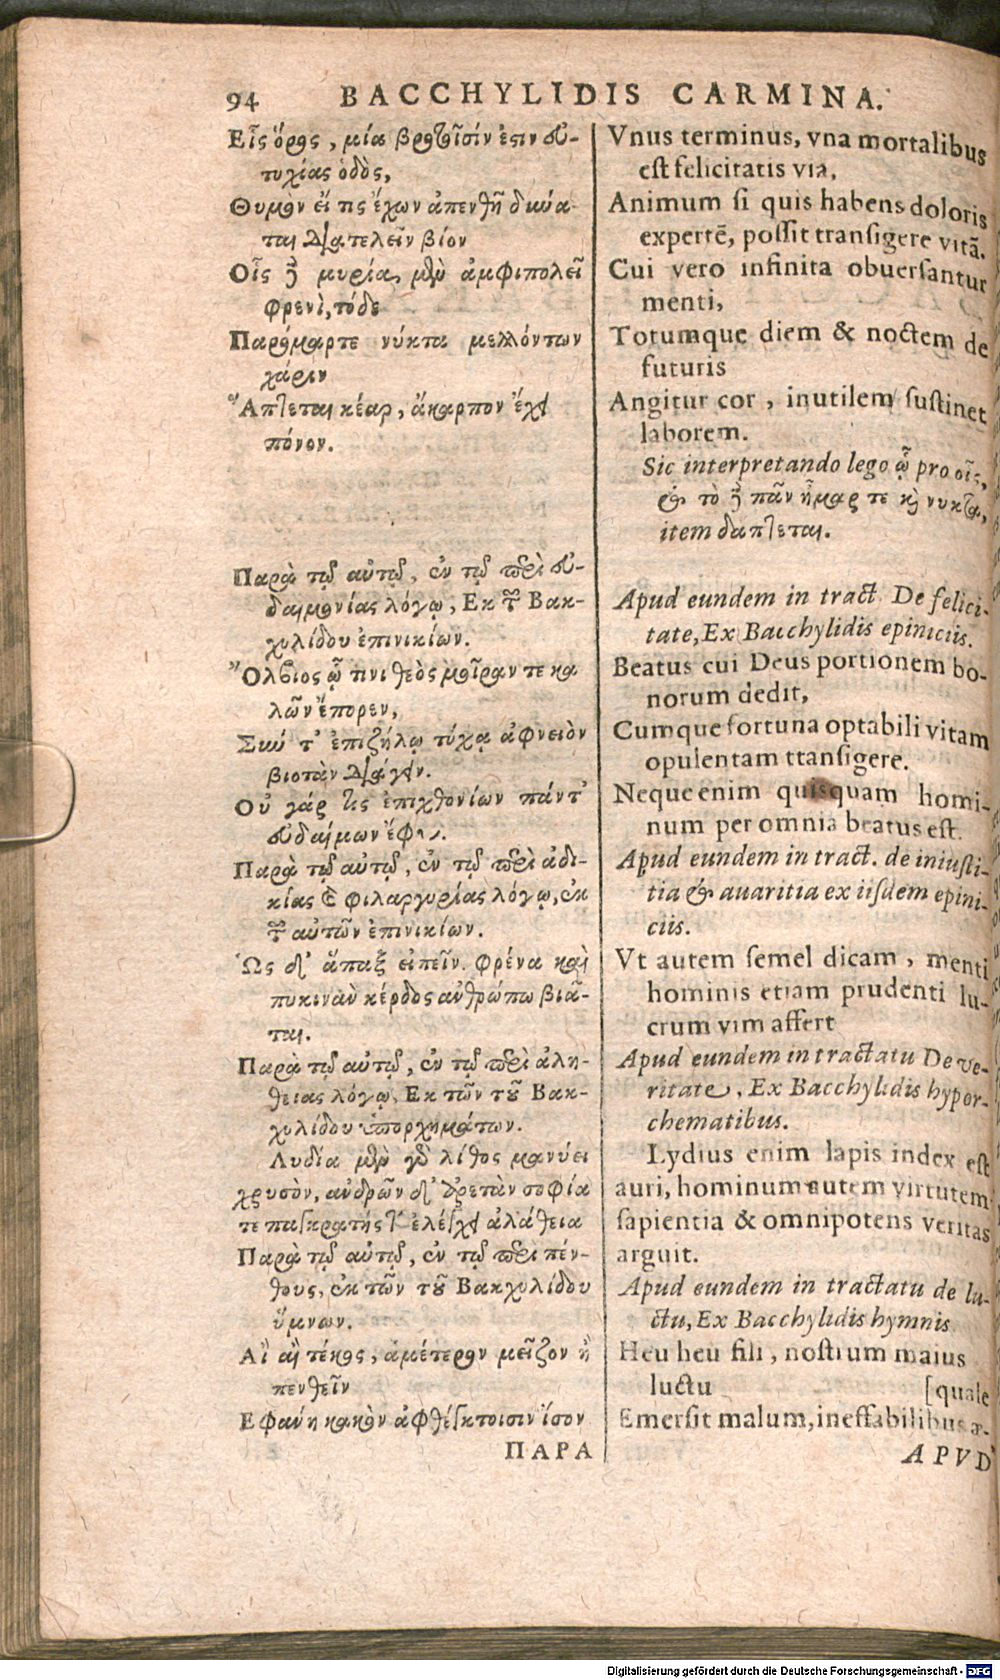 94 BACCHYLIDIS CARMINA.
Εἷς ὅρος, μία βροτοῖσίν ἐστιν εὐ-
τυχίας ὁδὸς,
Θυμὸν εἴ τις ἔχων ἀπενθῆ δύνα-
ται διατελεῖν βίον
Οἷς δὲ μυρία μὲν ἀμφιπολεῖ
φρενὶ, τόδε
Παρόμαρτε νύκτα μελλόντων
χάριν
Ἅπτεται κέαρ, ἄκαρπον ἔχει
πόνον.
Παρὰ τῷ αὐτῷ, ἐν τῷ περὶ εὐ-
δαιμονίας λόγῳ, Εκ τῶν Βακ-
χυλίδου ἐπινικίων.
Ὄλβιος ᾧ τινι θεὸς μοῖραν τε κα
λῶν ἔπορεν,
Σύν τ' ἐπιζήλῳ τύχᾳ ἀφνειὸν
βιοτὰν διάγειν.
Οὐ γάρ τις ἐπιχθονίων πάντ'
εὐδαίμων ἔφυ.
Παρὰ τῷ αὐτῷ, ἐν τῷ περὶ ἀδι-
κίας καὶ φιλαργυρίας λόγῳ, ἐκ
τῶν αὐτῶν ἐπινικίων.
Ὡς δ' ἅπαξ εἰπεῖν. φρένα καὶ
πυκινὰν κέρδος ἀνθρώπω βιᾶ-
ται.
Παρὰ τῷ αὐτῷ, ἐν τῷ περὶ ἀλη-
θείας λόγῳ, Εκ τῶν τοῦ Βακ-
χυλίδου ὑπορχημάτων.
Λυδία μὲν γὰρ λίθος μανύει
χρυσὸν, ἀνδρῶν δ' ἀρετὰν σοφία
τε παγκρατής τ' ἐλέγχει ἀλάθεια
Παρὰ τῷ αὐτῷ, ἐν τῷ περὶ πέν-
θους, ἐκ τῶν τοῦ Βακχυλίδου
ὕμνων.
Αἲ αἲ τέκος, ἁμέτερον μεῖζον ἢ
πενθεῖν
Εφάνη κακὸν ἀφθέγκτοισιν ἴσον
ΠΑΡΑ
Vnus terminus, vna mortalibus
est felicitatis via,
Animum si quis habens doloris
expertē, possit transigere vitā.
Cui vero infinita obuersantur
menti,
Totumque diem & noctem de
futuris
Angitur cor, inutilem sustinet
laborem.
Sic interpretando lego ᾧ pro οἷς,
& τὸ δὲ πᾶν ἦμάρ τε καὶ νύκτα,
item δάπτεται.
Apud eundem in tract. De felici-
tate, Ex Bacchylidis epiniciis.
Beatus cui Deus portionem bo-
norum dedit,
Cumque fortuna optabili vitam
opulentam ttansigere.
Neque enim quisquam homi-
num per omnia beatus est.
Apud eundem in tract. de iniusti-
tia & auaritia ex iisdem epini-
ciis.
Vt autem semel dicam, menti
hominis etiam prudenti lu-
crum vim affert
Apud eundem in tractatu De ve-
ritate, Ex Bacchylidis hypor-
chematibus.
Lydius enim lapis index est
auri, hominum autem virtutem
sapientia & omnipotens veritas
arguit.
Apud eundem in tractatu de lu-
ctu, Ex Bacchylidis hymnis.
Heu heu fili, nostrum maius
luctu [quale
Emersit malum, ineffabilibus æ-
APVD
Digitalisierung gefördert durch die Deutsche Forschungsgemeinschaft - DFG